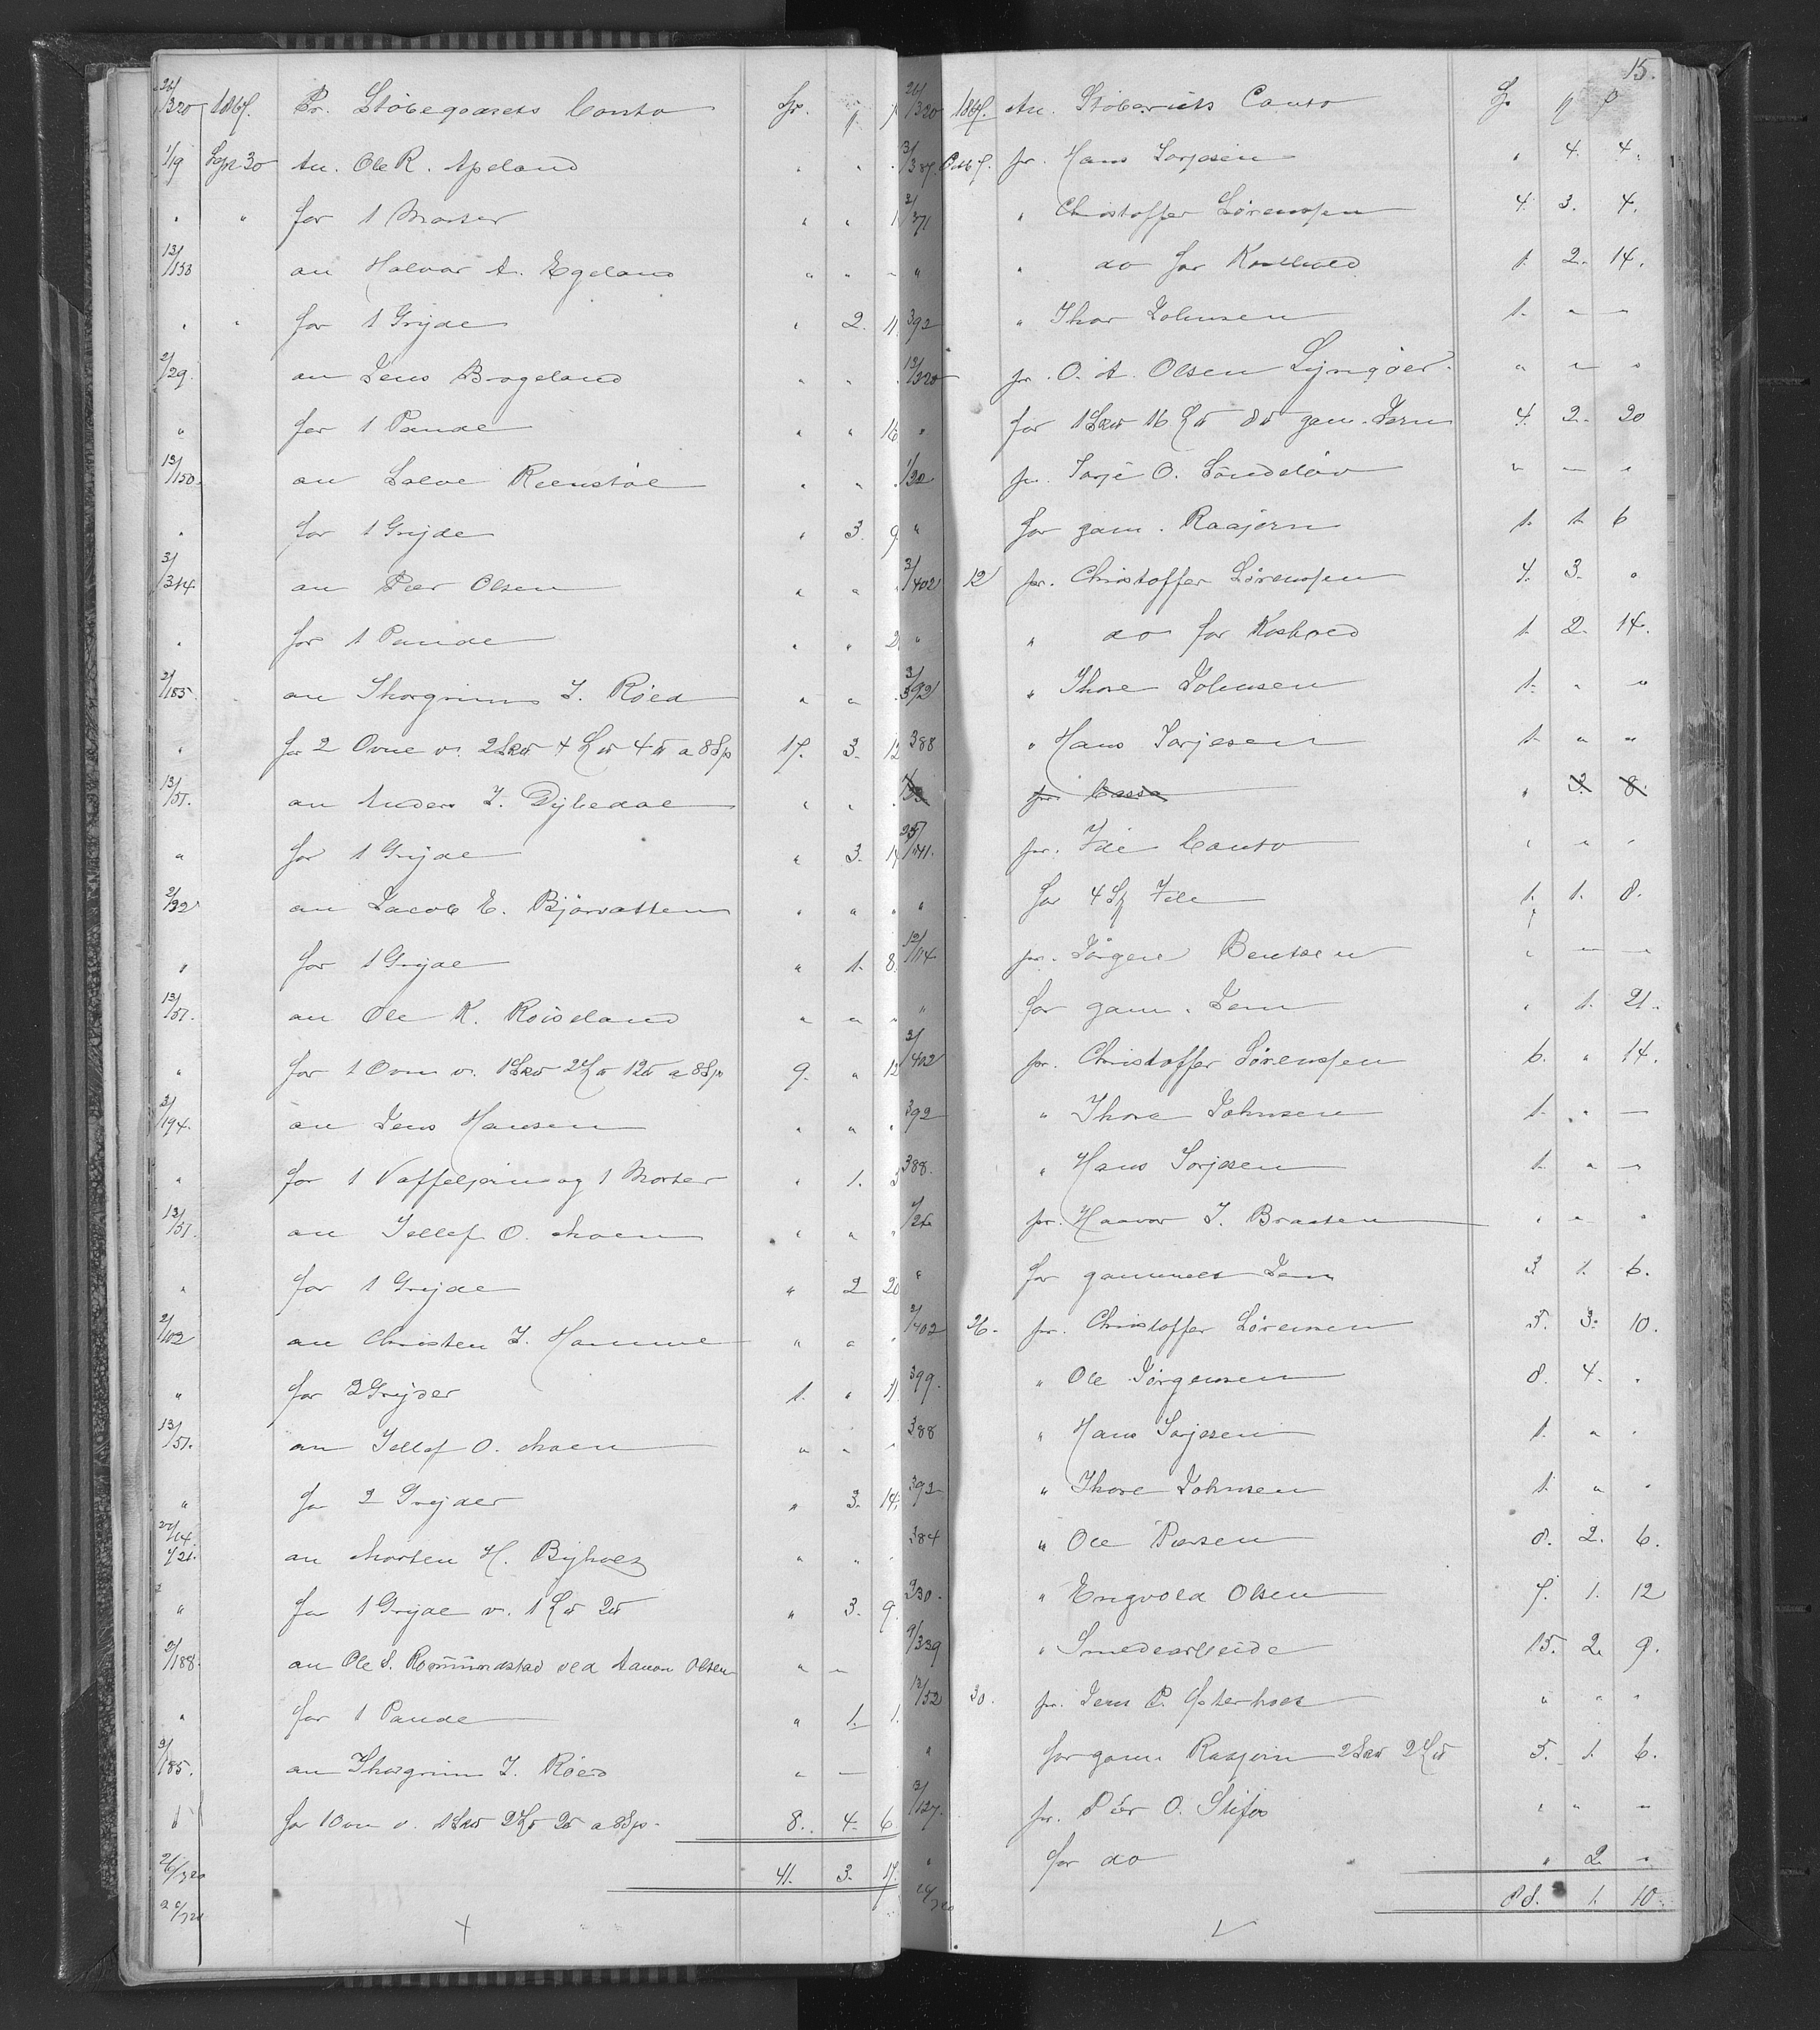 26/320 1867. Pr. Støbegodsets Conto Sp. ₰ β
1/9 Sept 30 An. Ole R. Apeland " " "
" " for 1 Morter " " 1
13/153 an Halvor A. Egeland " " "
" " for 1 Gryde " 2. 11.
2/29. an Jens Brogeland " " "
" for 1 Pande " " 16
13/150. an Salve Reenstøl " " "
" for 1 Gryde " 3. 9
3/314 an Peer Olsen " " "
" for 1 Pande " " 2
2/185. an Thorgrim J. Røed " " "
" for 2 Ovne v. 2 Sk℔ 4 L℔ 4 ℔ a 8 Sp 17. 3. 12
13/51. an Anders T. Dybedal " " "
" for 1 Gryde " 3. 14
2/32 an Jacob E. Bjorvatten " " "
" for 1 Gryde " 1. 8.
13/57. an Ole K. Røiseland " " "
" for 1 Ovn v. 1 Sk℔ 2 L℔ 12 ℔ a 8 Sp 9. " 12
3/194. an Jens Hansen " " "
" for 1 Vaffeljern og 1 Morter " 1. 3
13/51. an Tellef O. Moen " " "
" for 1 Gryde " 2 20
2/102 an Christen T. Hamme " "
" for 2 Gryder 1. " 11.
13/51. an Tellef O. Moen " " "
" for 2 Gryder " 3. 14.
1/21. an Morten H. Byholt " " "
" for 1 Gryde v. 1 L℔ 2 ℔ " 3. 9.
2/188. an Ole S. Rommundstad ved Aanon Olsen " "
" for 1 Pande " 1. 1.
2/185. an Thorgrim J. Røed " "
for 1 Ovn v. 1 Sk℔ 2 L℔ 2 ℔ a 8 Sp. 8. 4. 6
26/320 41. 3. 17.
15.
26/320 1867. An. Støberiets Conto Sp ₰ β
3/387. Octb 7. pr. Hans Torjesen " 4. 4.
3/371 " Christoffer Sørensen 4. 3. 4.
" " do for Kosthold 1. 2. 14.
392 " Thor Johnsen 1. " "
13/320 pr. O. A. Olsen Lyngøer. " " "
" for 1 Sk℔ 16 L℔ 8 ℔ gam. Jern 4. 2. 20
1/32 pr. Torje O. Søndeløv " " "
" for gam. Raajern 1. 1. 6
3/402 12 pr. Christoffer Sørensen 4. 3. "
" " do for Kosthold 1. 2. 14.
3/392 " Thore Johnsen 1. " "
388 " Hans Torjesen 1. " "
pr. Cassa " 3. 8.
25/141. pr. Ide Conto " " "
" for 4 Sk Ide 1. 1. 8.
12/114 pr. Jørgen Bentsen " " "
" for gam. Jern " 1. 21.
3/402 pr. Christoffer Sørensen 6. " 14.
392 " Thore Johnsen 1. " "
388. " Hans Torjesen 1. " "
pr. Haavor T. Braaten " " "
" for gammelt Jern 3 1. 6.
3/402 26. pr. Christoffer Sørensen 5. 3. 10.
399. " Ole Jørgensen 8. 4. "
388 " Hans Torjesen 1. " "
392 " Thore Johnsen 1. " "
384 " Ole Persen 8. 2. 6.
330. " Engvold Olsen 7. 1. 12
9/339 " Smedearbeide 15. 2. 9.
13/52 30. pr. Jens P. Østerholt " " "
" for gam. Raajern 2 Sk℔ 2 L℔ 5. 1. 6.
3/127. pr. Peer O. Stifos " " "
" for do " 2 "
88. 1. 10.